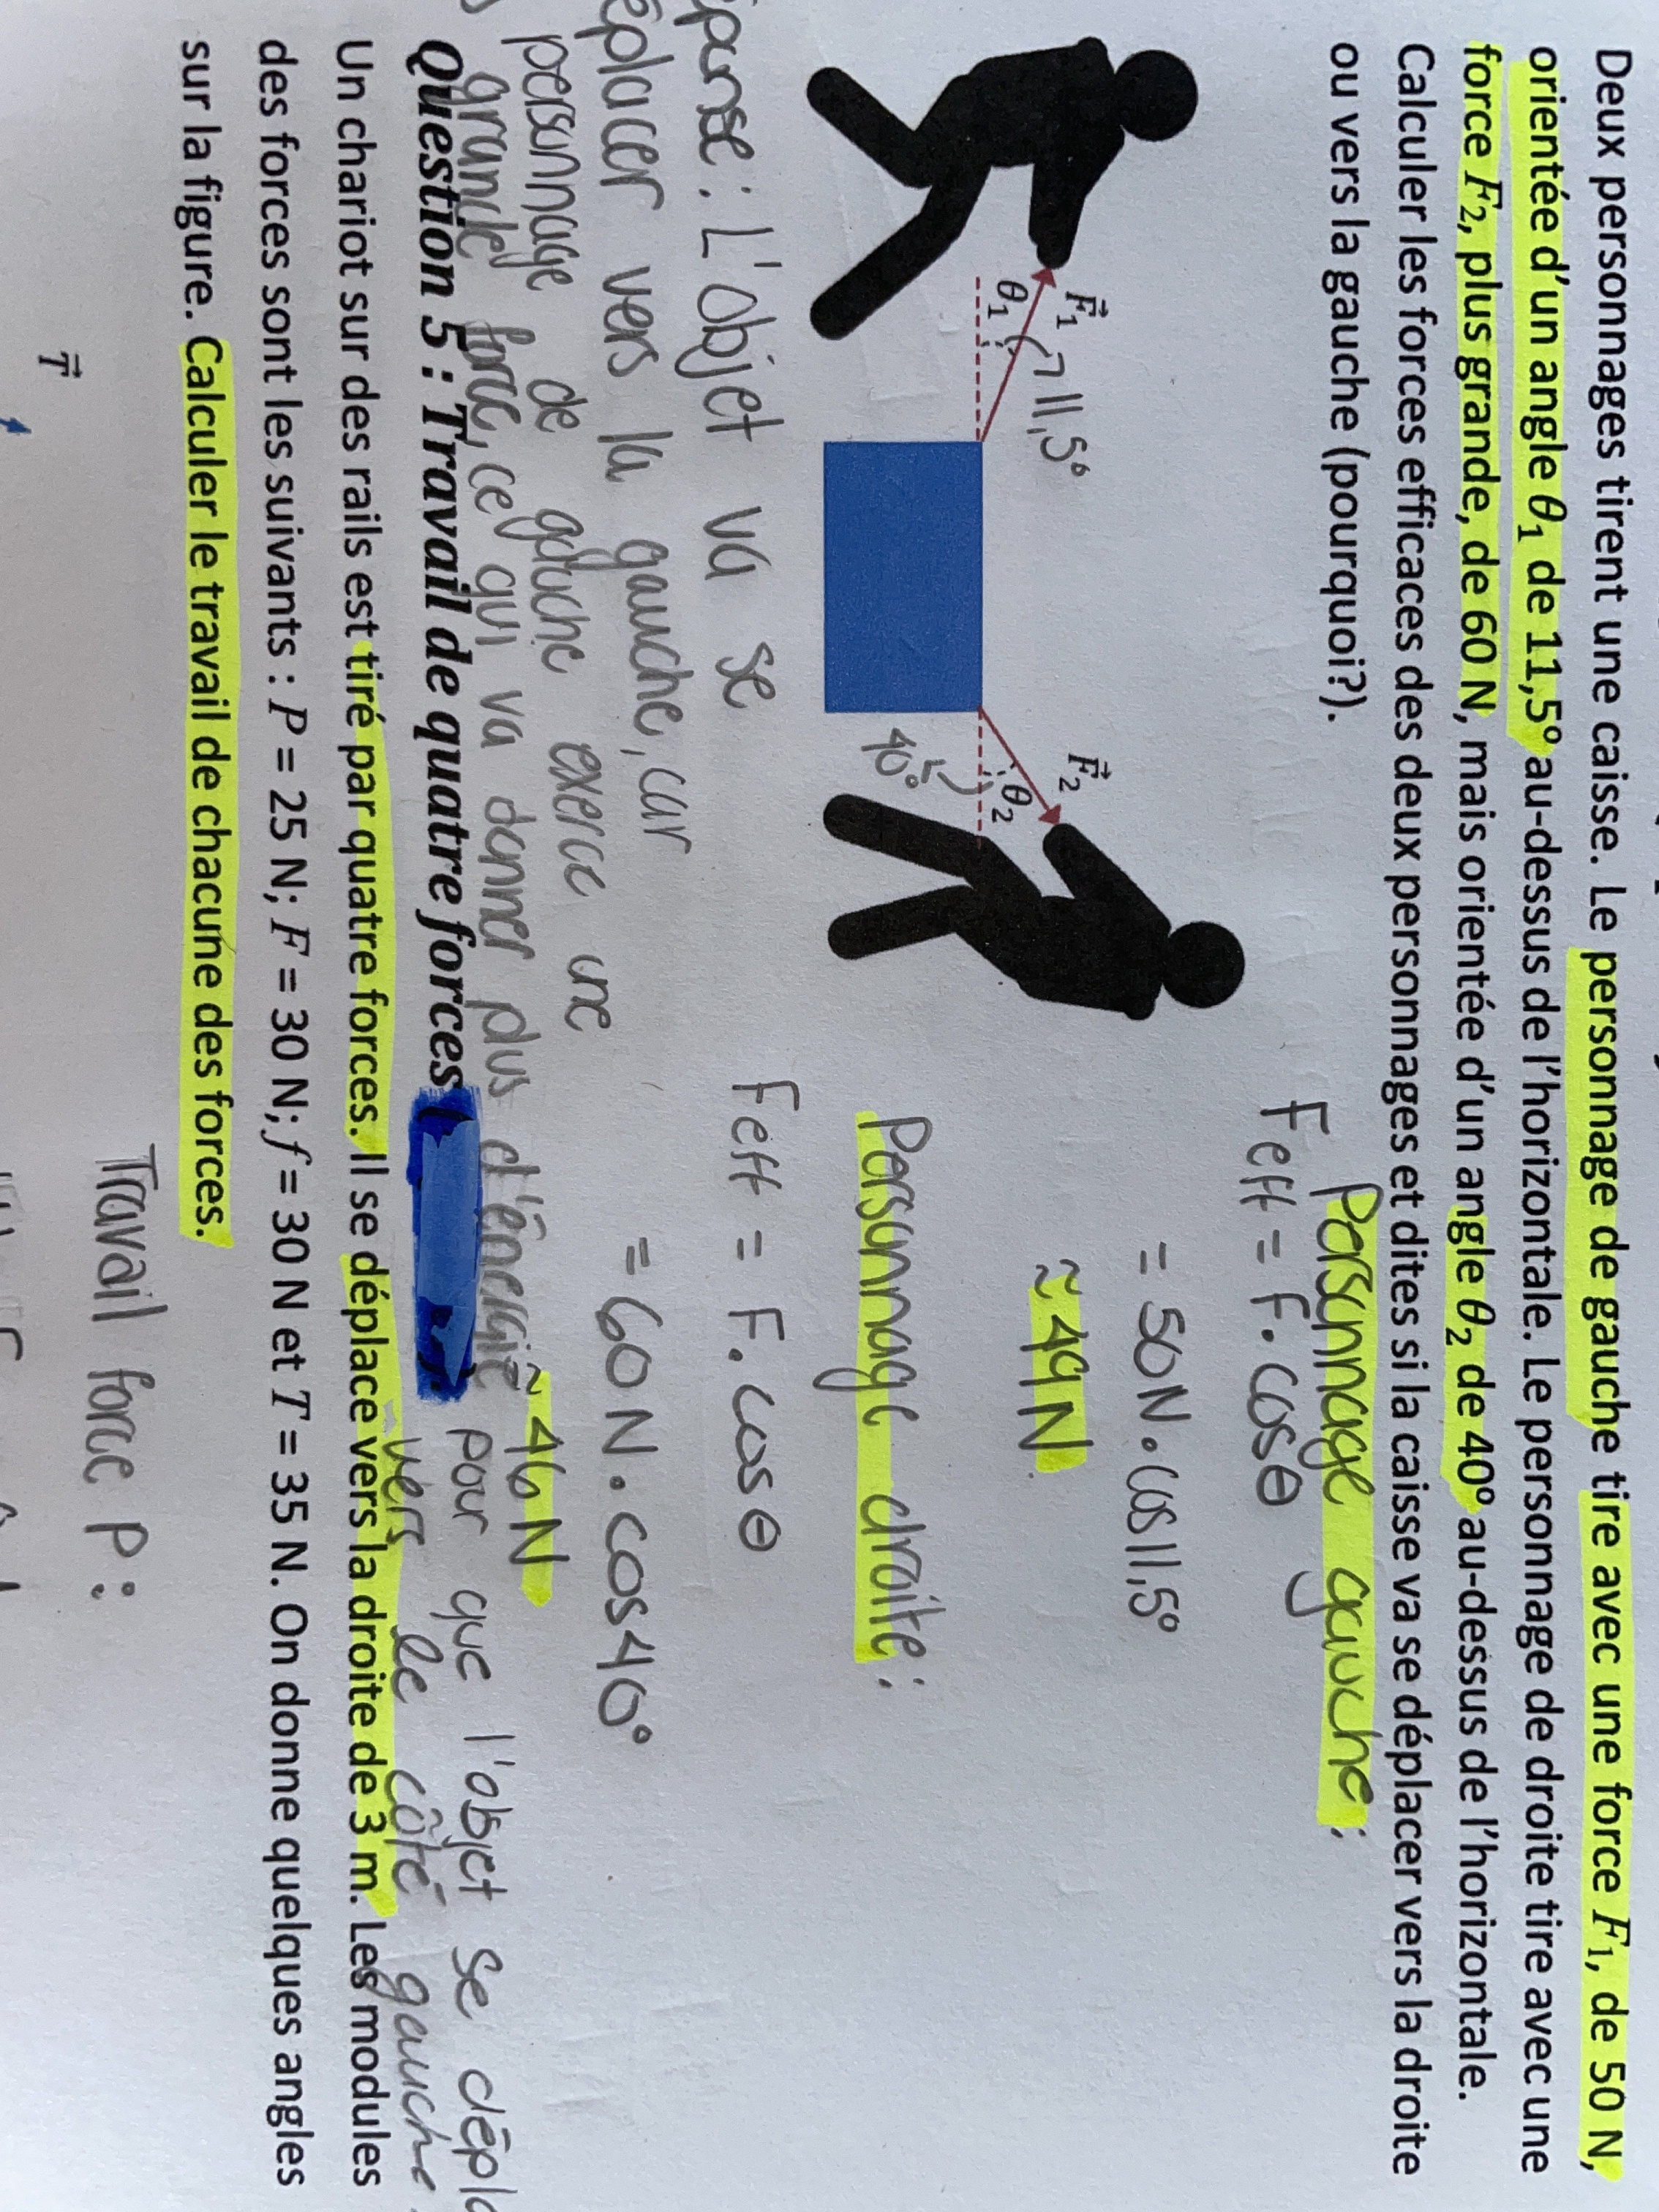 Deux personnages tirent une caisse. Le personnage de gauche tire avec une force F1, de 50 N,
orientée d'un angle θ1 de 11,5° au-dessus de l'horizontale. Le personnage de droite tire avec une
force F2, plus grande, de 60 N, mais orientée d'un angle θ2 de 40° au-dessus de l'horizontale.
Calculer les forces efficaces des deux personnages et dites si la caisse va se déplacer vers la droite
ou vers la gauche (pourquoi?).
Personnage gauche:
Feff = F. cosθ
= 50N. cos11,5°
≈ 49N
F⃗1
11,5°
θ1
F⃗2
θ2
40°
Personnage droite:
Feff = F. cosθ
= 60N. cos40°
≈ 46N
ponse: L'objet va se
éplacer vers la gauche, car
personnage de gauche exerce une
grande force, ce qui va donner plus d'énergie pour que l'objet se dépla
vers le côté gauche.
Question 5 : Travail de quatre forces
Un chariot sur des rails est tiré par quatre forces. Il se déplace vers la droite de 3 m. Les modules
des forces sont les suivants : P = 25 N; F = 30 N; f = 30 N et T = 35 N. On donne quelques angles
sur la figure. Calculer le travail de chacune des forces.
Travail force P:
T⃗